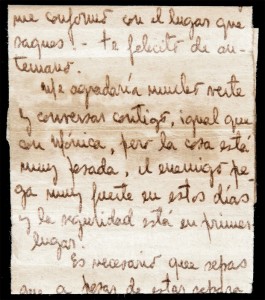 me conformo con el lugar que
saques! - te felicito de an-
temano.
Me agradaría mucho verte
y conversar contigo, igual que
con Mónica, pero la cosa está
muy pesada, el enemigo pe-
ga muy fuerte en estos días
y la seguridad está en primer
lugar.
Es necesario que sepas
que a pesar de estar separa